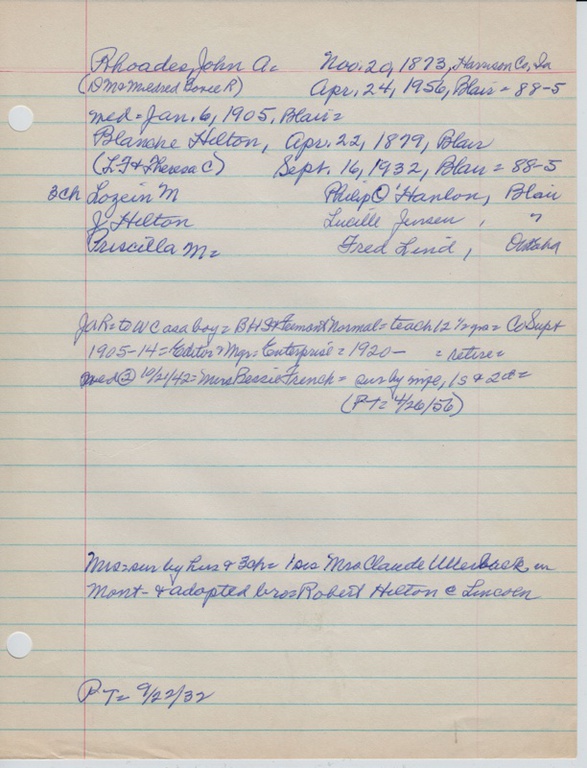 Rhoades, John A= Nov. 29, 1873, Harrison Co, Ia
(D M & Mildred Boxie R) Apr. 24, 1956, Blair = 88-5
med = Jan. 6, 1905, Blair =
Blanche Hilton, Apr. 22, 1879, Blair
(L F & Theresa C) Sept. 16, 1932, Blair = 88-5
3 ch Lozein M Philip O'Hanlon, Blair
J Hilton Lucille Jensen, "
Priscilla M= Fred Lind, Omaha
JAR = to W C as a boy = B H S & Fremont Normal = teach 12 ½ yrs = Co Supt
1905-14 = Editor & Mgr = Enterprise = 1920- = retire =
med ② 10/21/42 = Mrs Bessie French = sur by wife, 1 s & 2 d =
(P-T= 4/26/56)
Mrs = sur by hus & 3 ch = 1 sis Mrs Claude Utterback in
Mont- & adopted bro = Robert Hilton @ Lincoln
P-T= 9/22/32